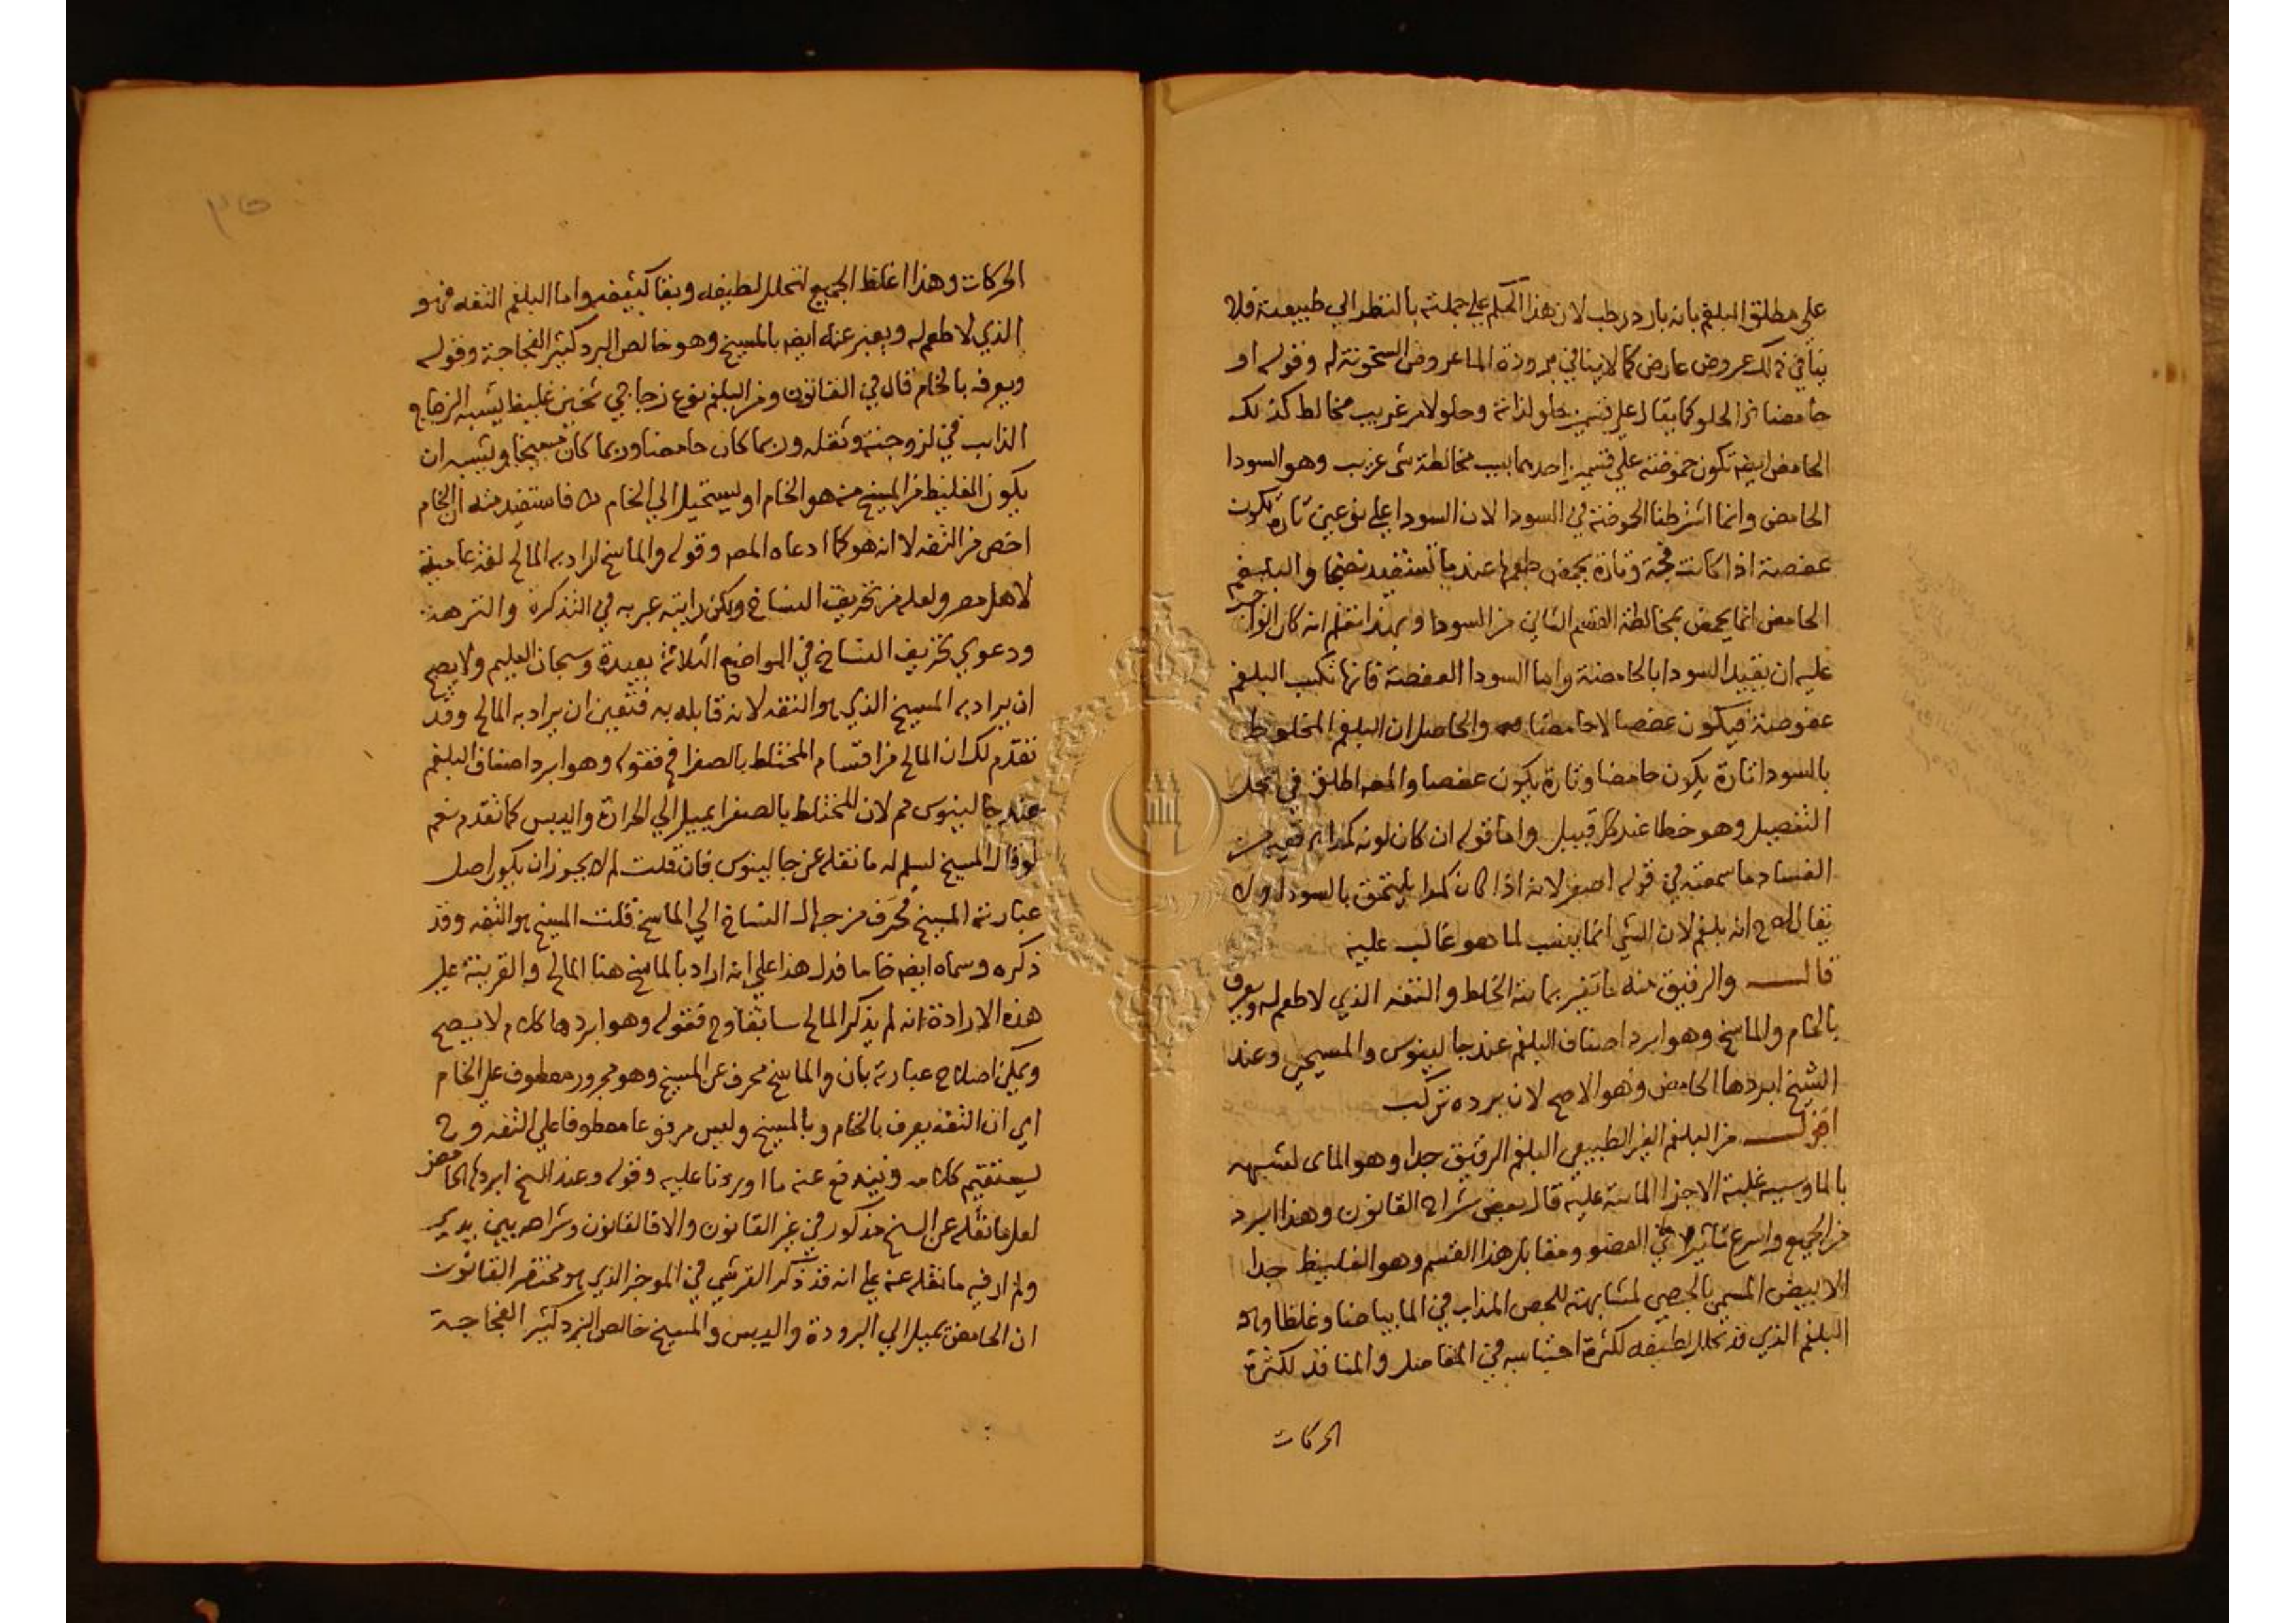 علي مطلق البلغم بانه بارد رطب لان هذا الحكم علي جملته بالنظر الي طبيعته فلا
ينافي ذلك عروض عارض كما لاينافي برودة الما عروض السخونة له وقوله او
حامضا نر الحلو كما يقال علي قسمين حلو لذاته وحلو لامر غريب مخالط كذلك
الحامض ايضه تكون حموضته علي قسمين احدهما بسبب مخالطة شى غريب وهو السودا
الحامض وانما اشترطنا الحموضة في السودا لان السودا علي نوعين تارة تكون
عفصة اذا كانت فجة وتارة يحمض طعمها عند ما تستفيد نضجا والبلغم
الحامض انما يحمض بمخالطة القسم الثاني من السودا وبهذا تعلم انه كان الواجب
عليه ان يقيد السودا بالحامضة واما السودا العفصة فانها تكسب البلغم
عفوصة فيكون عفصا لا حامضا والحاصل ان البلغم المخلوط
بالسودا تارة يكون حامضا وتارة يكون عفصا والمصه اطلق في محل
التفصيل وهو خطا عند كل قبيل واما قوله ان كان لونه كمدا ففيه من
الفساد ما سمعته في قوله اصفر لانه اذا كان كمدا يلتحق بالسودا ولا
يقال له ح انه بلغم لان الشي انما ينسب لما هو غالب عليه
قال والرقيق منه ما تغير بمائية الخلط والتفه الذي لا طعم له ويعرف
بالخام والماسخ وهو ابرد اصناف البلغم عند جالينوس والمسيحي وعند
الشيخ ابردها الحامض وهو الاصح لان برده تركب
اقول من البلغم الغير الطبيعي البلغم الرقيق جدا وهو الماى لشبهه
بالما وسببه غلبة الاجزا المائية عليه قال بعض شراح القانون وهذا ابرد
من الجميع واسرع تاثيرا في العضو ومقابل هذا القسم وهو الغليظ جدا
الابيض المسمي بالجصي لمشابهته للجص المذاب في الما بياضا وغلظا وهو
البلغم الذي قد تحلل لطيفه لكثرة احتباسه في المفاصل والمنافذ لكثرة
الحركات
٣٥
الحركات وهذا اغلظ الجميع لتحلل لطيفه وبقا كثيفه واما البلغم التفه فهو
الذي لا طعم له ويعبر عنه ايضه بالمسيخ وهو خالص البرد كثير الفجاجة وقوله
ويعرفه بالخام قال في القانون ومن البلغم نوع زجاجي ثخين غليظ يشبه الزجاج
الذايب في لزوجته وثقله وربما كان حامضا وربما كان مسيخا ويشبه ان
يكون الغليظ من المسيخ منه هو الخام او يستحيل الي الخام فاستفيد منه ان الخام
اخص من التفه لا انه هو كما ادعاه المصه وقوله والماسخ اراد به المالح لغة عامية
لاهل مصر ولعله من تحريف النساخ ولكن رايته عبر به في التذكرة والنزهة
ودعوي تحريف النساخ في المواضع الثلاثة بعيدة وسبحان العليم ولا يصح
ان يراد به المسيخ الذي هو التفه لانه قابله به فتعين ان يراد به المالح وقد
تقدم لك ان المالح من اقسام المختلط بالصفرا فقوله وهو ابرد اصناف البلغم
عند جالينوس مم لان المختلط بالصفرا يميل الي الحرارة واليبس كما تقدم نعم
لو قال المسيخ لسلم له ما نقله عن جالينوس فان قلت لم لا يجوز ان يكون اصل
عبارته المسيخ محرف من جهال النساخ الي الماسخ قلت المسيخ هو التفه وقد
ذكره وسماه ايضه خاما فدل هذا علي انه اراد بالماسخ هنا المالح والقرينة علي
هذه الارادة انه لم يذكر المالح سابقا وح فقوله وهو ابردها كلام لا يصح
ويمكن اصلاح عبارته بان والماسخ محرف عن المسيخ وهو مجرور معطوف علي الخام
اي ان التفه يعرف بالخام وبالمسيخ وليس مرفوعا معطوفا علي التفه وح
يستقيم كلامه ويندفع عنه ما اوردنا عليه وقوله وعند الشيخ ابردها الحامض
لعل ما نقله عن الشيخ مذكور في غير القانون والا فالقانون وشراحه بين يدي
ولم ار فيه ما نقله عنه علي انه قد ذكر القرشي في الموجز الذي هو مختصر القانون
ان الحامض يميل الي البرودة واليبس والمسيخ خالص البرد كثير الفجاجة